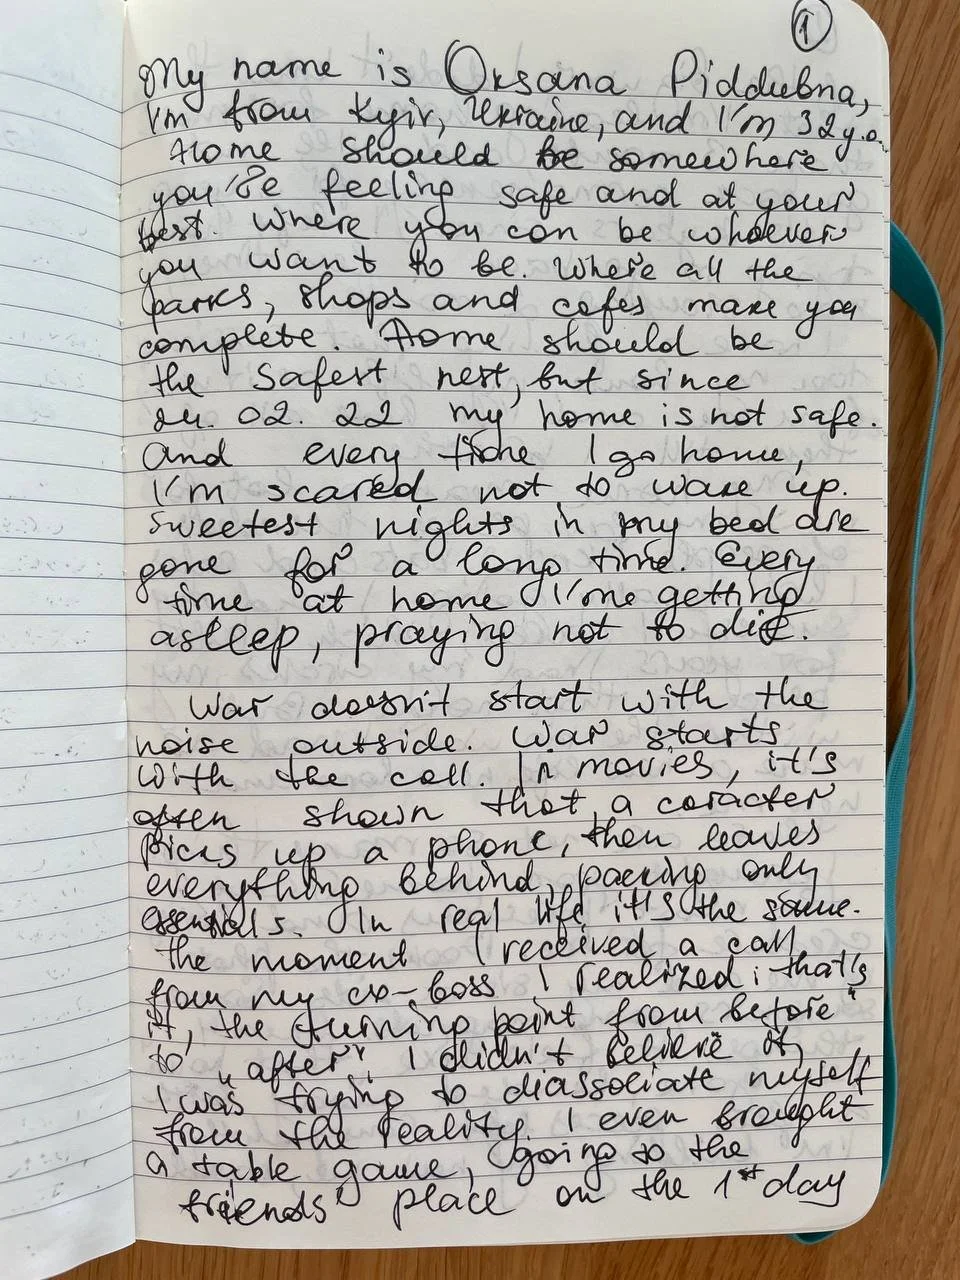 1
My name is Oksana Piddubna,
I'm from Kyiv, Ukraine, and I'm 32 y.o.
Home should be somewhere
you're feeling safe and at your
best. Where you can be whoever
you want to be. Where all the
parks, shops and cafes make you
complete. Home should be
the safest nest, but since
24. 02. 22 my home is not safe.
And every time I go home,
I'm scared not to wake up.
Sweetest nights in my bed are
gone for a long time. Every
time at home I'me getting
asleep, praying not to die.
War doesn't start with the
noise outside. War starts
with the call. In movies, it's
often shown that a coracter
picks up a phone, then leaves
everything behind, packing only
essentials. In real life it's the same.
The moment I received a call
from my ex-boss I realized: that's
it, the turning point from "before"
to "after". I didn't believe it,
I was trying to diassociate myself
from the reality. I even brought
a table game, going to the
friends' place on the 1st day